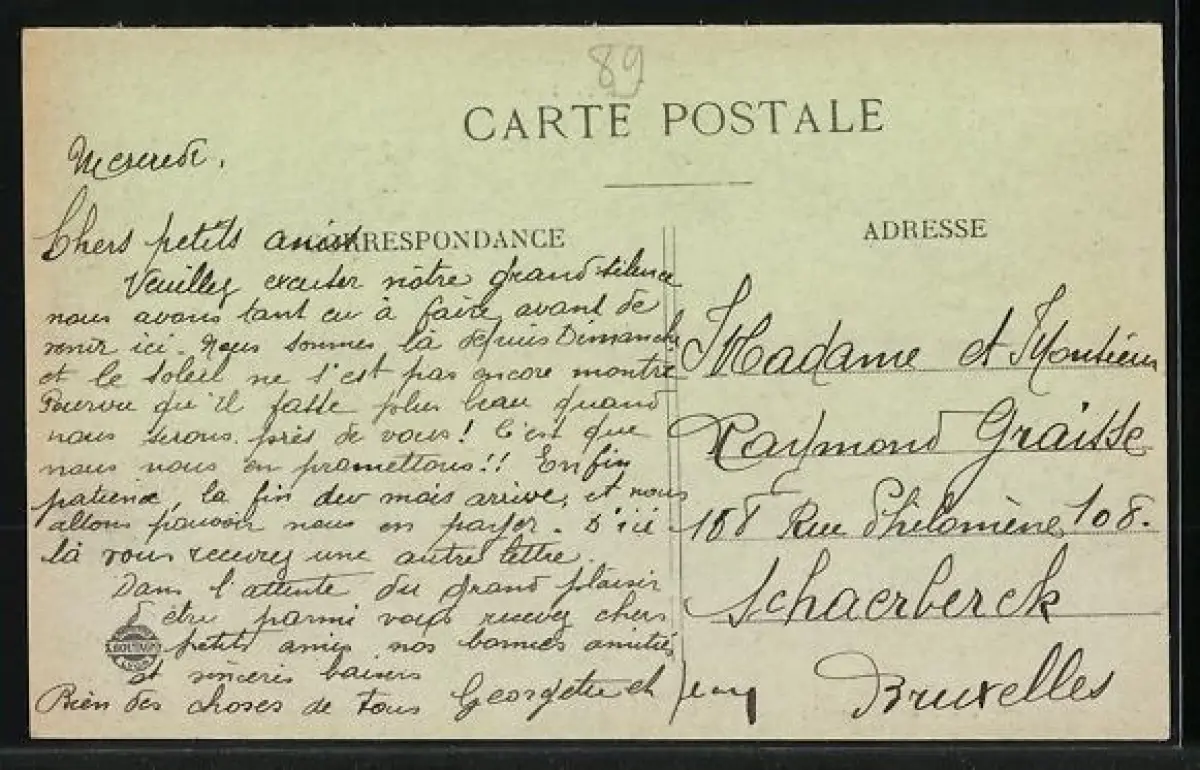 89
CARTE POSTALE
Mercredi.
Chers petits amis
CORRESPONDANCE
ADRESSE
Veuillez excuser notre grand silence
nous avons tant eu à faire avant de
venir ici. Nous sommes là depuis Dimanche
et le soleil ne s'est pas encore montré
Pourvu qu'il fasse plus beau quand
nous serons près de vous! C'est que
nous nous en promettons!! Enfin
patience, la fin du mois arrive, et nous
allons pouvoir nous en payer. D'ici
là vous recevrez une autre lettre.
Dans l'attente du grand plaisir
d'être parmi vous recevez chers
petits amis nos bonnes amitiés
et sincères baisers
Bien des choses de tous Georgette et Jean
Madame et Monsieur
Raymond Graisse
108 Rue Philomène 108.
Schaerberck
Bruxelles